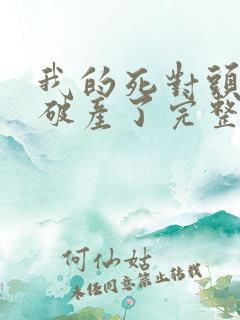 我的死對頭
破産了完整
何仙姑
未经同意禁止转载